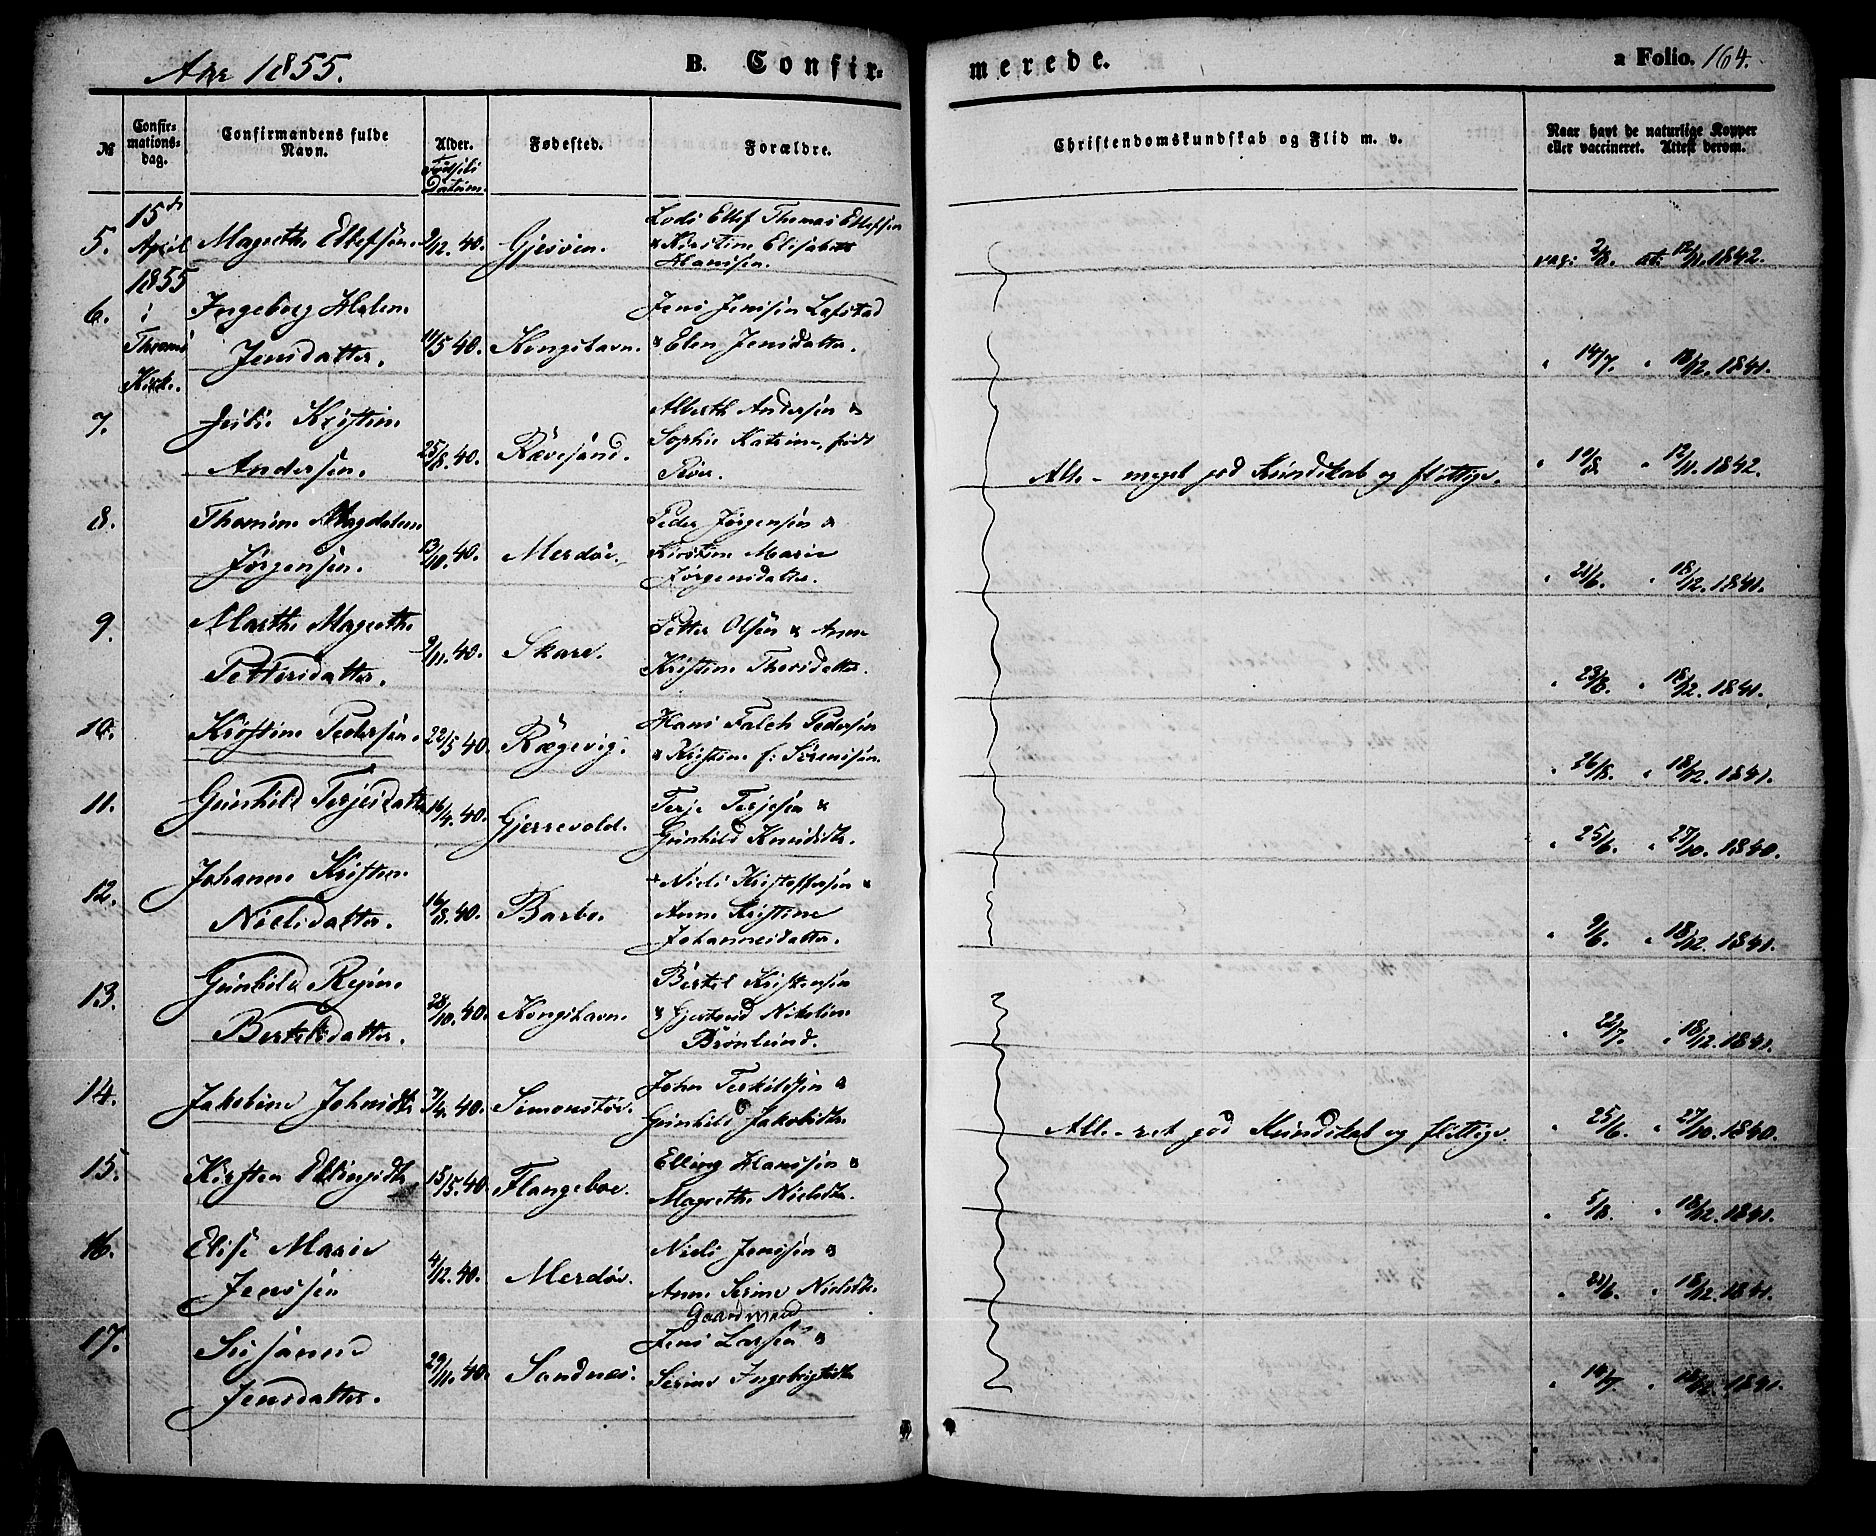 Aar 1855.
B. Confir-
merede.
a Folio. 164.
№
Confir-
mations-
dag.
Confirmandens fulde
Navn.
Alder.
Fødsels
Datum.
Fødested.
Forældre.
Christendomskundskab og Flid m. v.
Naar havt de naturlige Kopper
eller vaccineret. Attest derom.
15de
April
1855
i
Thromø
Kirke.
5. Magrethe Ellefsen. 9/12.40. Gjesøen. Lods Ellef Thomas Ellefsen
& Kirstine Elisabeth
Hansen.
vac: 2/8. at: 12/11.1842.
6. Ingeborg Helene
Jensdatter. 11/5 40. Kongshavn. Jens Jensen Lofstad
& Elen Jensdatter.
" 14/7. " 18/12.1841.
7. Julie Kristine
Andersen. 25/8.40. Rævesand. Alberth Andersen &
Sophie Katrine, født
" " 12/11.1842.
Alle - meget god Kundskab og flittige.
8. Thomine Magdalene
Jørgensen. 13/10.40. Merdøe. Peder Jørgensen &
Kirstine Marie
Jørgensdatter.
" 21/6. " 18/12.1841.
9. Marthe Magrethe
Pettersdatter. 9/11.40. Skare. Petter Olsen & Anne
Kristine Thorsdatter.
" 23/8. " 18/12.1841.
10. Kristine Pedersen. 22/5 40. Rægevig. Hans Falch Pedersen
& Kristine f: Sørensen.
" 26/8. " 18/12.1841.
11. Gunhild Terjesdatter 16/4.40. Gjerrevold. Terje Terjesen &
Gunhild Knudsdtr.
" 25/6. " 27/10.1840.
12. Johanne Kristine
Nielsdatter. 16/8.40. Barbo. Niels Kristoffersen &
Anne Kristine
Johannesdatter.
" 9/6. " 18/12.1841.
13. Gunhild Regine
Bertelsdatter. 28/10.40. Kongshavn. Bertel Kristensen
& Gjertrud Nikoline
Brønlund.
" 22/7. " 18/12.1841.
14. Jakobine Johnsdtr. 7/4.40. Simonstøe. John Terkildsen &
Gunhild Jakobsdtr.
" 25/6. " 27/10.1840.
Alle - ret god Kundskab og flittige.
15. Kirsten Ellingsdtr. 15/5.40. Flangeboe. Elling Hansen &
Magrethe Nielsdtr.
" 5/8. " 18/12.1841.
16. Elise Marie
Jensen 4/12.40. Merdøe. Niels Jensen &
Anne Serine Nielsdtr.
" 21/6. " 18/12.1841.
17. Susanne
Jensdatter. 29/11.40. Sandnæs. Gaardmand
Jens Larsen &
Serine Ingebrigtsdtr
" 14/7. " 18/12.1841.